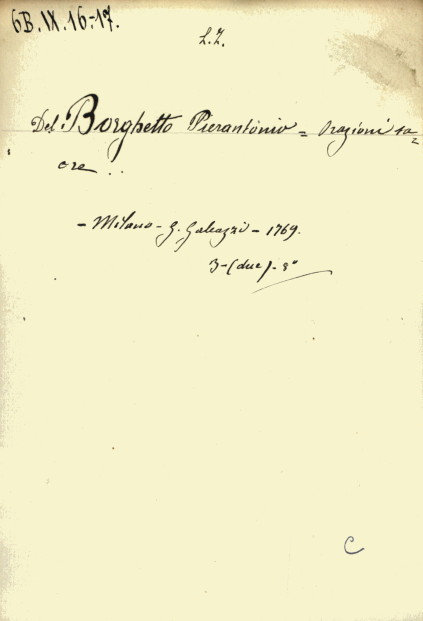 6B.IX.16-17.
L.Z.
Del Borghetto Pierantonio = Orazioni sa=
cre..
- Milano - G. Galeazzi - 1769.
3-(due)-8°
C